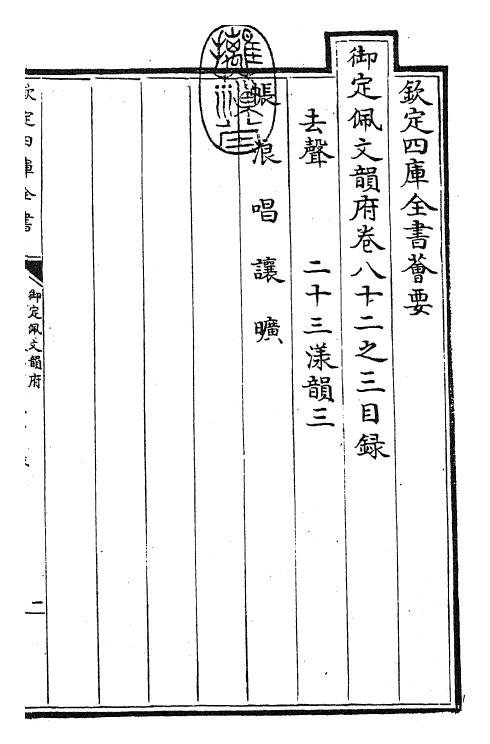 欽定四庫全書薈要
御定佩文韻府卷八十二之三目録
去聲　二十三漾韻三
帳　浪　唱　讓　曠
欽定四庫全書
御定佩文韻府
二